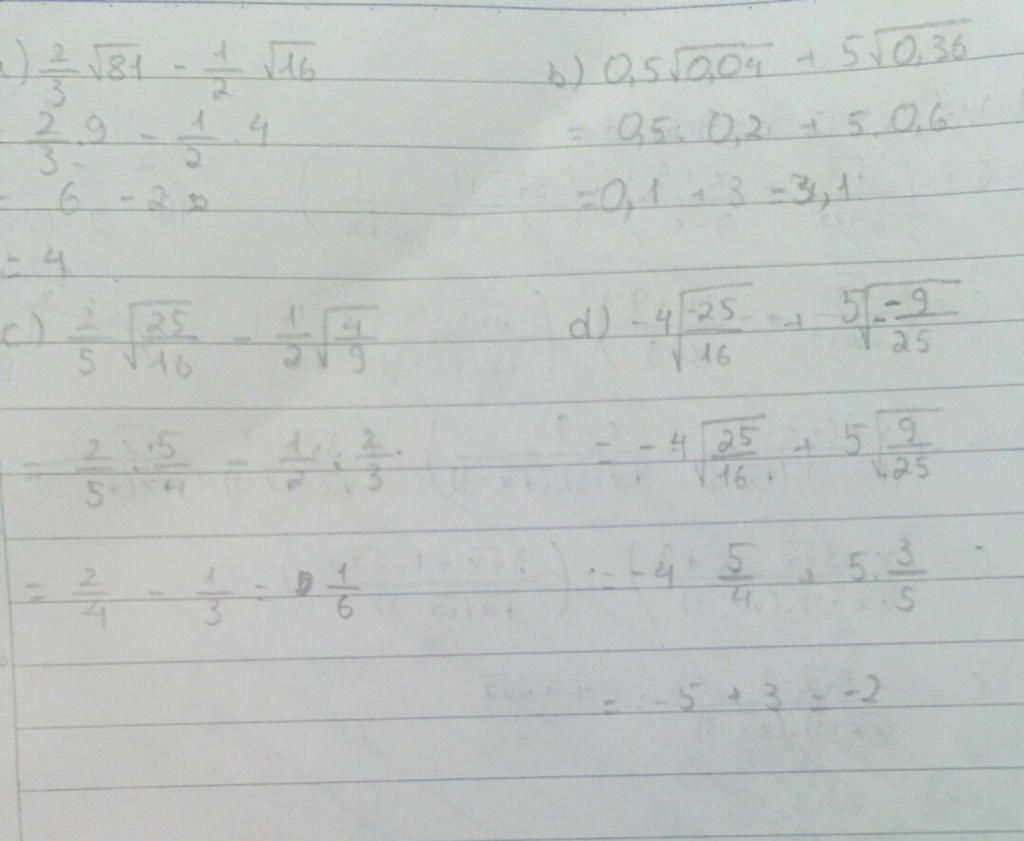 a) 2/3 √81 - 1/2 √16
= 2/3 . 9 - 1/2 . 4
= 6 - 2
= 4
b) 0,5√0,04 + 5√0,36
= 0,5 . 0,2 + 5 . 0,6
= 0,1 + 3 = 3,1
c) 2/5 √(25/16) - 1/2 √(4/9)
= 2/5 . 5/4 - 1/2 . 2/3
= 2/4 - 1/3 = 1/6
d) -4√(-25/16) + 5√(-9/25)
= -4√(25/16) + 5√(9/25)
= -4 . 5/4 + 5 . 3/5
= -5 + 3 = -2